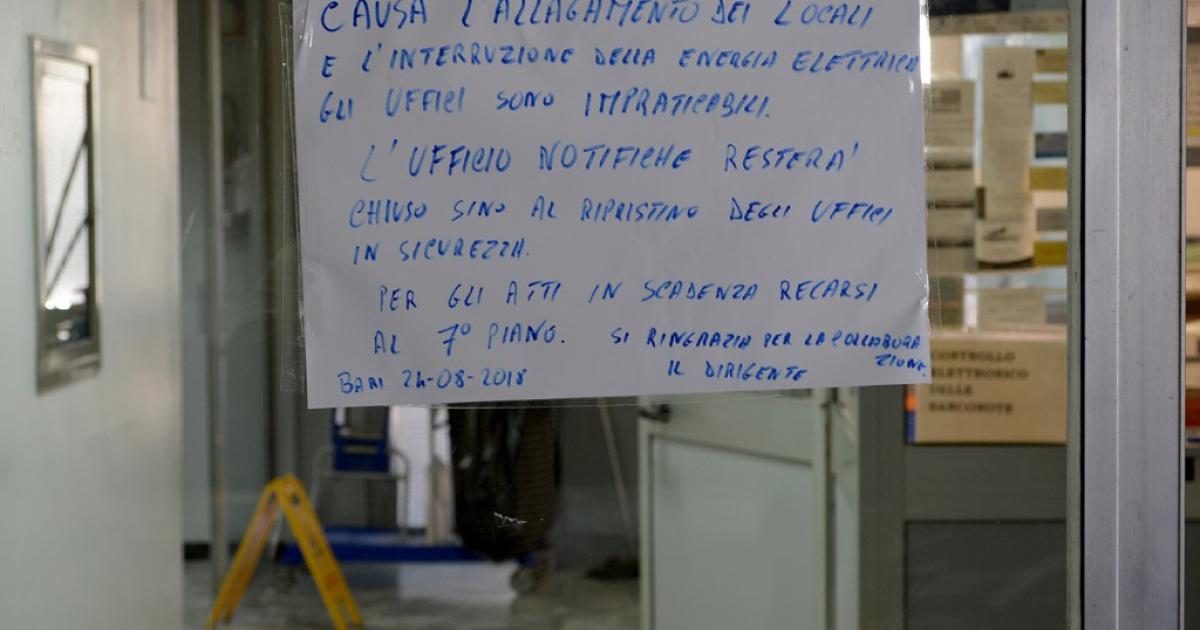 CAUSA L'ALLAGAMENTO DEI LOCALI
E L'INTERRUZIONE DELLA ENERGIA ELETTRICA
GLI UFFICI SONO IMPRATICABILI.
L'UFFICIO NOTIFICHE RESTERA'
CHIUSO SINO AL RIPRISTINO DEGLI UFFICI
IN SICUREZZA.
PER GLI ATTI IN SCADENZA RECARSI
AL 7° PIANO. SI RINGRAZIA PER LA COLLABORA
ZIONE.
BARI 24-08-2018 IL DIRIGENTE
CONTROLLO
ELETTRONICO
DELLE
BANCONOTE